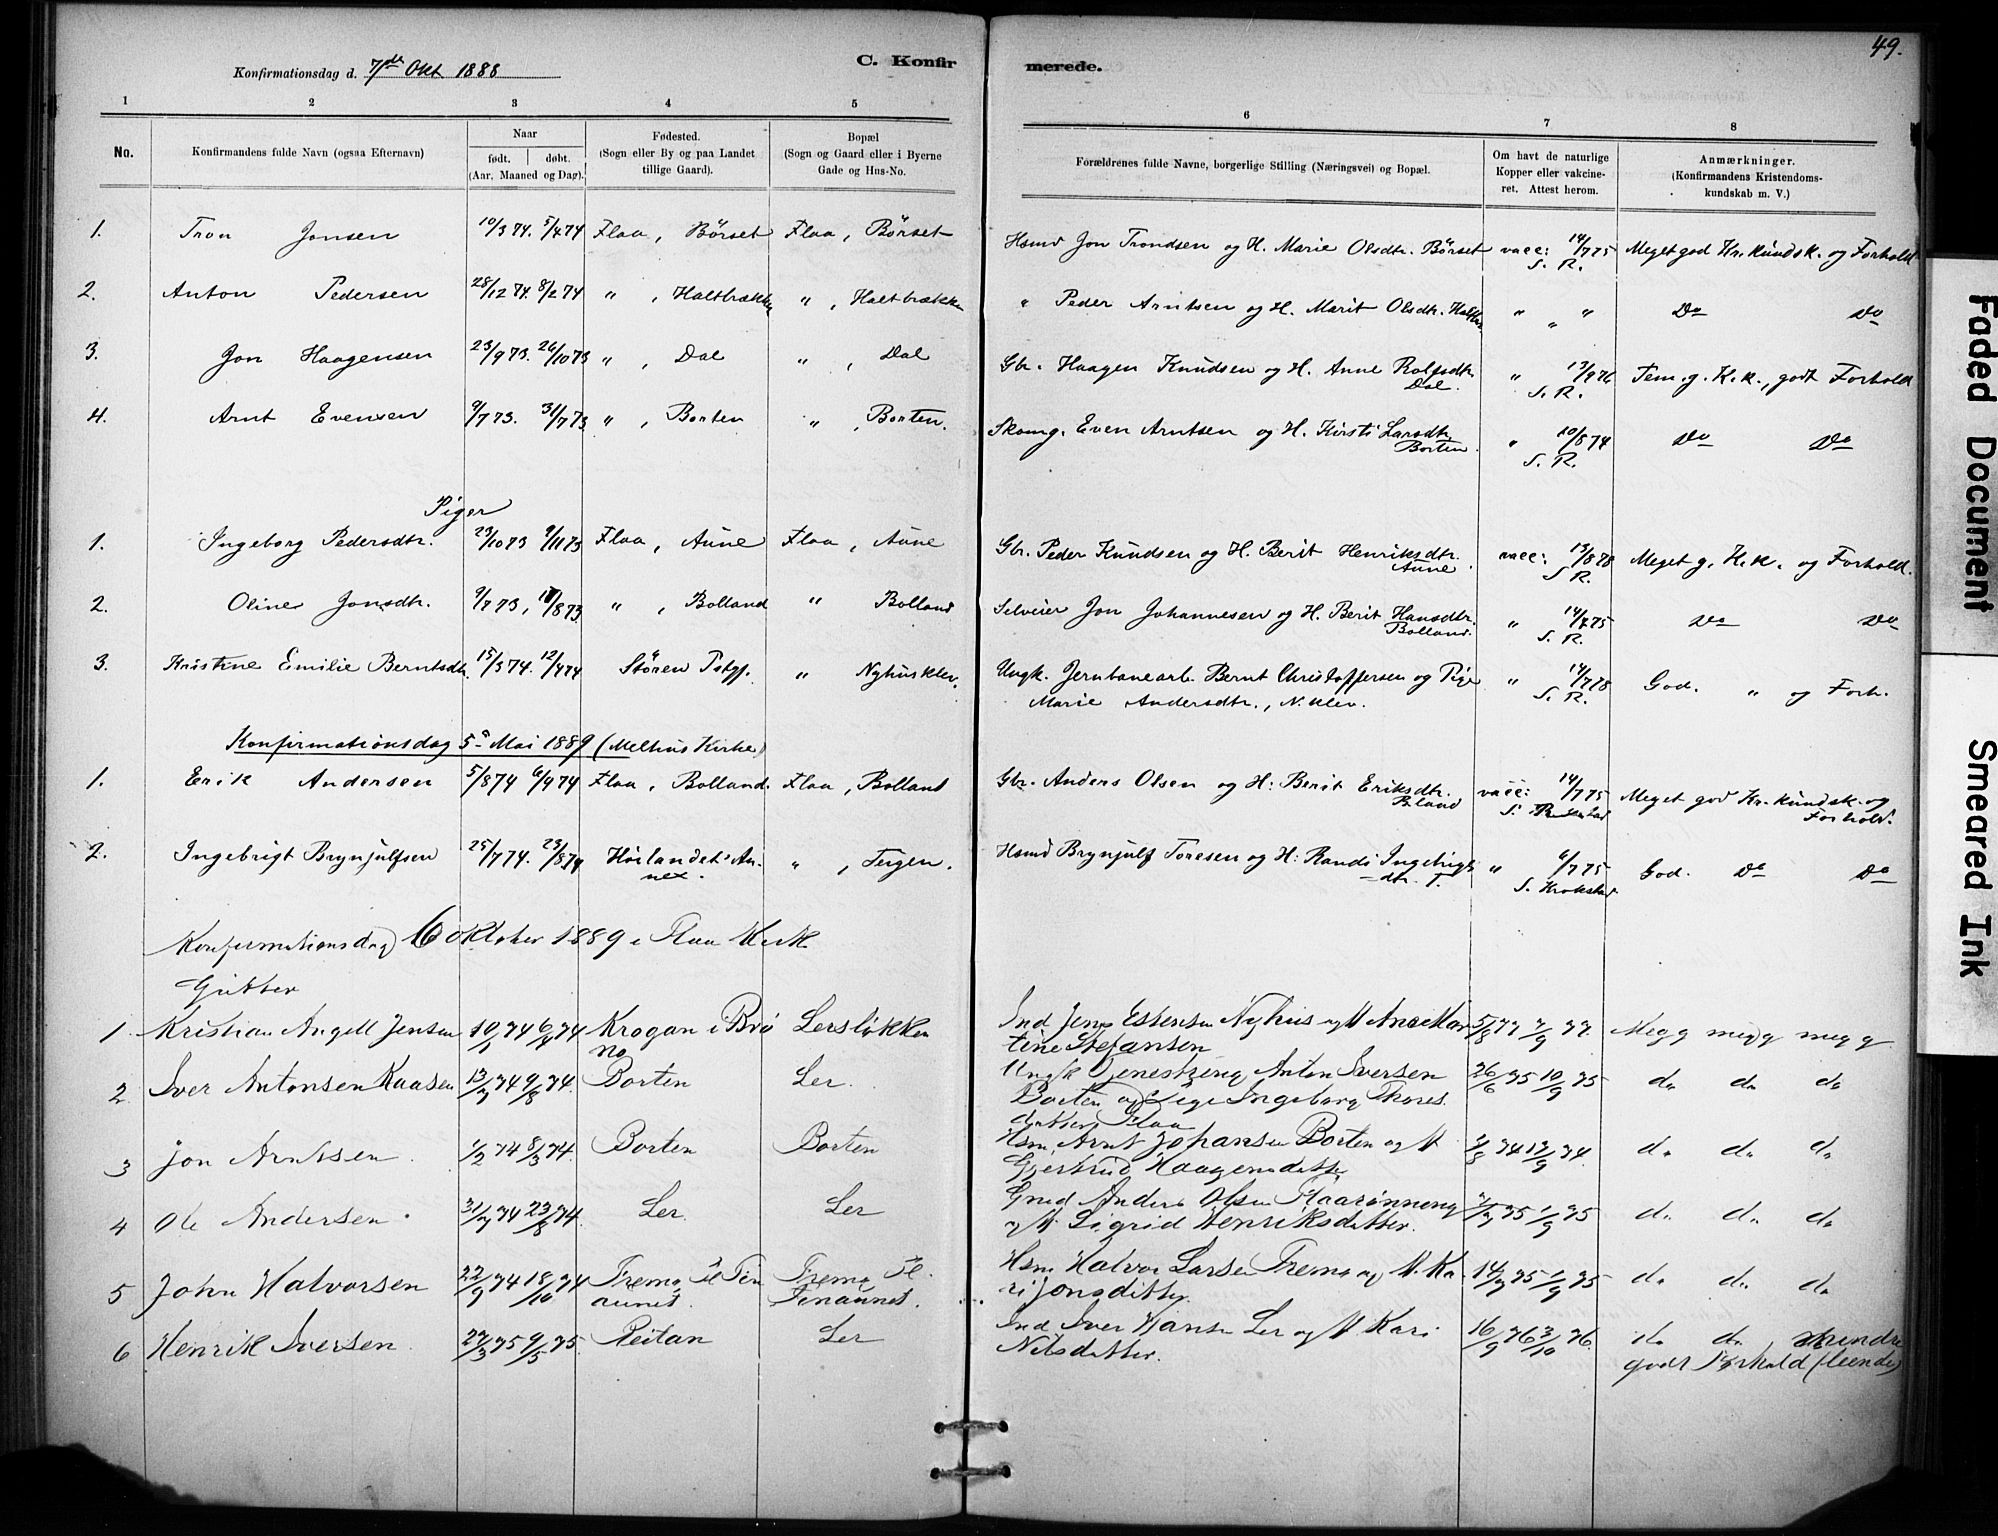 49.
Konfirmationsdag d. 7de Okt 1888
C. Konfirmerede.
1 2 3 4 5 6 7 8
No.
Konfirmandens fulde Navn (ogsaa Efternavn)
Naar
født. døbt.
(Aar, Maaned og Dag).
Fødested.
(Sogn eller By og paa Landet
tillige Gaard).
Bopæl
(Sogn og Gaard eller i Byerne
Gade og Hus-No.
Forældrenes fulde Navne, borgerlige Stilling (Næringsvei) og Bopæl.
Om havt de naturlige
Kopper eller vakcine-
ret. Attest herom.
Anmærkninger.
(Konfirmandens Kristendoms-
kundskab m. V.)
1. Tron Jonsen 10/3 74. 5/4 74 Flaa, Börset Flaa, Börset Hsmd Jon Trondsen og H. Marie Olsdtr. Börset vacc: 14/7 75 Meget god Kr. kundsk. og Forhold
S. R.
2. Anton Pedersen 28/12 74. 8/2 74 " , Haltbrækken " , Haltbrækken " Peder Arntsen og H. Marit Olsdtr. " " " Do Do
3. Jon Haagensen 23/9 73. 26/10 73 " , Dal " , Dal Gbr. Haagen Knudsen og H. Anne Rolfsdtr. " 13/9 76 Tem. g. K.k., godt Forhold
Dal. S. R.
4. Arnt Evensen 9/7 73. 31/7 73 " , Borten " , Borten. Skomg. Even Arntsen og H. Kirsti Larsdtr. " 10/8 74 Do Do
Borten. S. R.
Piger
1. Ingeborg Pedersdtr. 23/10 73 9/11 73 Flaa, Aune Flaa, Aune Gbr. Peder Knudsen og H. Berit Henriksdtr. vacc: 13/8 78 Meget g. K.k. og Forhold.
Aune S. R.
2. Oline Jonsdtr. 9/7 73, 17/8 73 " , Bolland " Bolland Selveier Jon Johannesen og H. Berit Hansdtr. " 14/7 75 Do Do
Bolland. S. R.
3. Kristine Emilie Berntsdtr. 15/3 74. 12/4 74 Stören Pstgj. " Nyhusklev. Ungk. Jernbanearb. Bernt Christoffersen og Pige " 14/7 78 God. " og Forh.
Marie Andersdtr., N. klev. S. R.
Konfirmationsdag 5. Mai 1889 (Melhus Kirke)
1. Erik Andersen 5/8 74 6/9 74 Flaa, Bolland. Flaa, Bolland Gbr. Anders Olsen og H: Berit Eriksdtr. vacc: 14/7 75 Meget god Kr. kundsk. og
B.land S. Forhold.
2. Ingebrigt Brynjulfsen 25/7 74. 23/8 74 Hölandet An- " , Teigen. Hsmd Brynjulf Toresen og H: Randi Ingebrigt " 6/7 75 God. Do Do
nex. =dtr. T. S. Krokstad
Konfirmationsdag 6 Oktober 1889 i Flaa Kirk
Gutter
1 Kristian Angell Jensen 10/1 74 6/4 74 Krogan i Brö Lersløkken Ind Jens Estensen Nyhus og H Ane Mar 5/8 77 7/9 77. Meg g meg g meg g
no tine Stefansen
2 Iver Antonsen Kaasen 13/7 74 9/8 74. Borten Ler. Ungk Tjenestreng Anton Iversen 26/6 75 10/9 75 do do do
Borten og Pige Ingeborg Thores
datter Flaa
3 Jon Arntsen. 1/2 74 8/3 74. Borten Borten Hsm. Arnt Johansen Borten og H 2/8 74 12/9 74. do do do
Gjertrud Haagensdatter
4 Ole Andersen. 31/7 74 23/8 74. Ler. Ler Gmd Anders Olsen Flaarønneng 75 1/9 75 do do do
og H Sigrid Henriksdatter.
5 John Halvorsen 22/9 74 18/10 74 Tremo, Fl Tremo Fl. Hsm Halvor Larsen Tremo og H. Ka 14/7 75 1/9 75 do do do
aunet. aunet. ri Jonsdatter
6 Henrik Iversen. 27/3 75 9/5 75. Reitan Ler Ind Iver Hansen Ler og H Kari 16/9 76 3/10 76. do do mindre
Nilsdatter. godt Forhold
Faded Document
Smeared Ink